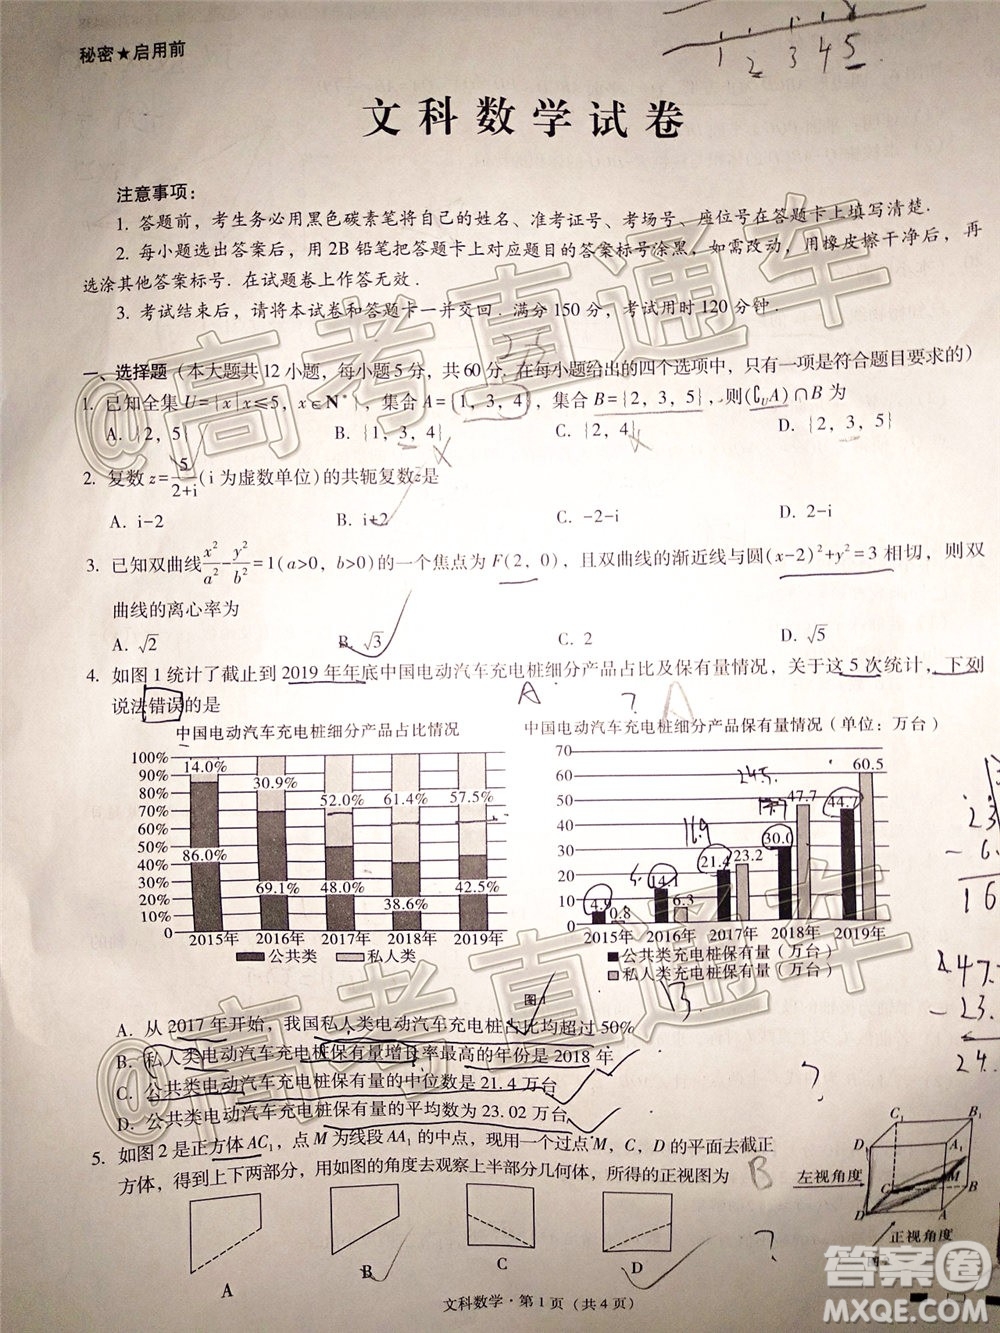 秘密★启用前
1 2 3 4 5
文科数学试卷
注意事项：
1. 答题前，考生务必用黑色碳素笔将自己的姓名、准考证号、考场号、座位号在答题卡上填写清楚.
2. 每小题选出答案后，用2B铅笔把答题卡上对应题目的答案标号涂黑，如需改动，用橡皮擦干净后，再
选涂其他答案标号. 在试题卷上作答无效.
3. 考试结束后，请将本试卷和答题卡一并交回. 满分150分，考试用时120分钟.
一、选择题（本大题共12小题，每小题5分，共60分. 在每小题给出的四个选项中，只有一项是符合题目要求的）
1. 已知全集U={x|x≤5，x∈N*}，集合A={1，3，4}，集合B={2，3，5}，则(∁UA)∩B为
A. {2，5} B. {1，3，4} C. {2，4} D. {2，3，5}
2. 复数z=5/(2+i)(i为虚数单位)的共轭复数z̄是
A. i-2 B. i+2 C. -2-i D. 2-i
3. 已知双曲线x²/a²-y²/b²=1(a>0，b>0)的一个焦点为F(2，0)，且双曲线的渐近线与圆(x-2)²+y²=3相切，则双
曲线的离心率为
A. √2 B. √3 C. 2 D. √5
4. 如图1统计了截止到2019年年底中国电动汽车充电桩细分产品占比及保有量情况，关于这5次统计，下列
说法错误的是
A ? A
中国电动汽车充电桩细分产品占比情况
100%
90%
80%
70%
60%
50%
40%
30%
20%
10%
0
14.0% 30.9% 52.0% 61.4% 57.5%
86.0% 69.1% 48.0% 38.6% 42.5%
2015年 2016年 2017年 2018年 2019年
公共类 私人类
中国电动汽车充电桩细分产品保有量情况（单位：万台）
70
60
50
40
30
20
10
0
4.9 0.8 14.1 6.3 21.4 23.2 30.0 47.7 44.7 60.5
16.9 24.5
2015年 2016年 2017年 2018年 2019年
公共类充电桩保有量（万台）
私人类充电桩保有量（万台）
图1
B
A. 从2017年开始，我国私人类电动汽车充电桩占比均超过50%
B. 私人类电动汽车充电桩保有量增长率最高的年份是2018年
C. 公共类电动汽车充电桩保有量的中位数是21.4万台
D. 公共类电动汽车充电桩保有量的平均数为23.02万台
?
5. 如图2是正方体AC₁，点M为线段AA₁的中点，现用一个过点M，C，D的平面去截正
方体，得到上下两部分，用如图的角度去观察上半部分几何体，所得的正视图为
B
A B C D
?
C₁ B₁ D₁ A₁ M C B D A
左视角度
正视角度
文科数学·第1页（共4页）
@高考直通车
@高考直通车
答案圈
MXQE.COM